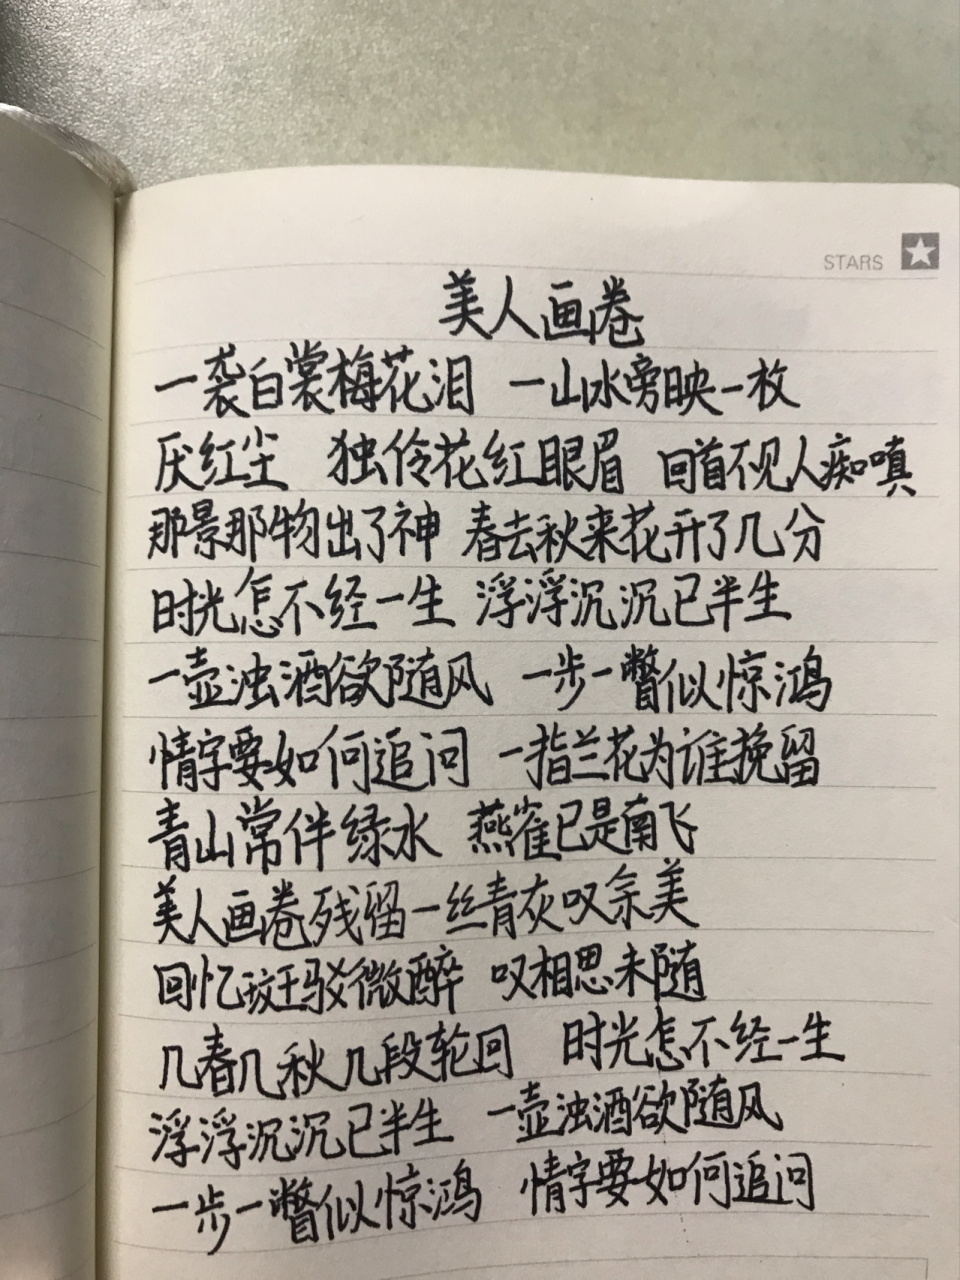 STARS
美人画卷
一袭白裳梅花泪 一山水旁映一枚
厌红尘 独伶花红眼眉 回首不见人痴嗔
那景那物出了神 春去秋来花开了几分
时光怎不经一生 浮浮沉沉已半生
一壶浊酒欲随风 一步一瞥似惊鸿
情字要如何追问 一指兰花为谁挽留
青山常伴绿水 燕雀已是南飞
美人画卷残留一丝青灰叹余美
回忆斑驳微醉 叹相思未随
几春几秋几段轮回 时光怎不经一生
浮浮沉沉已半生 一壶浊酒欲随风
一步一瞥似惊鸿 情字要如何追问